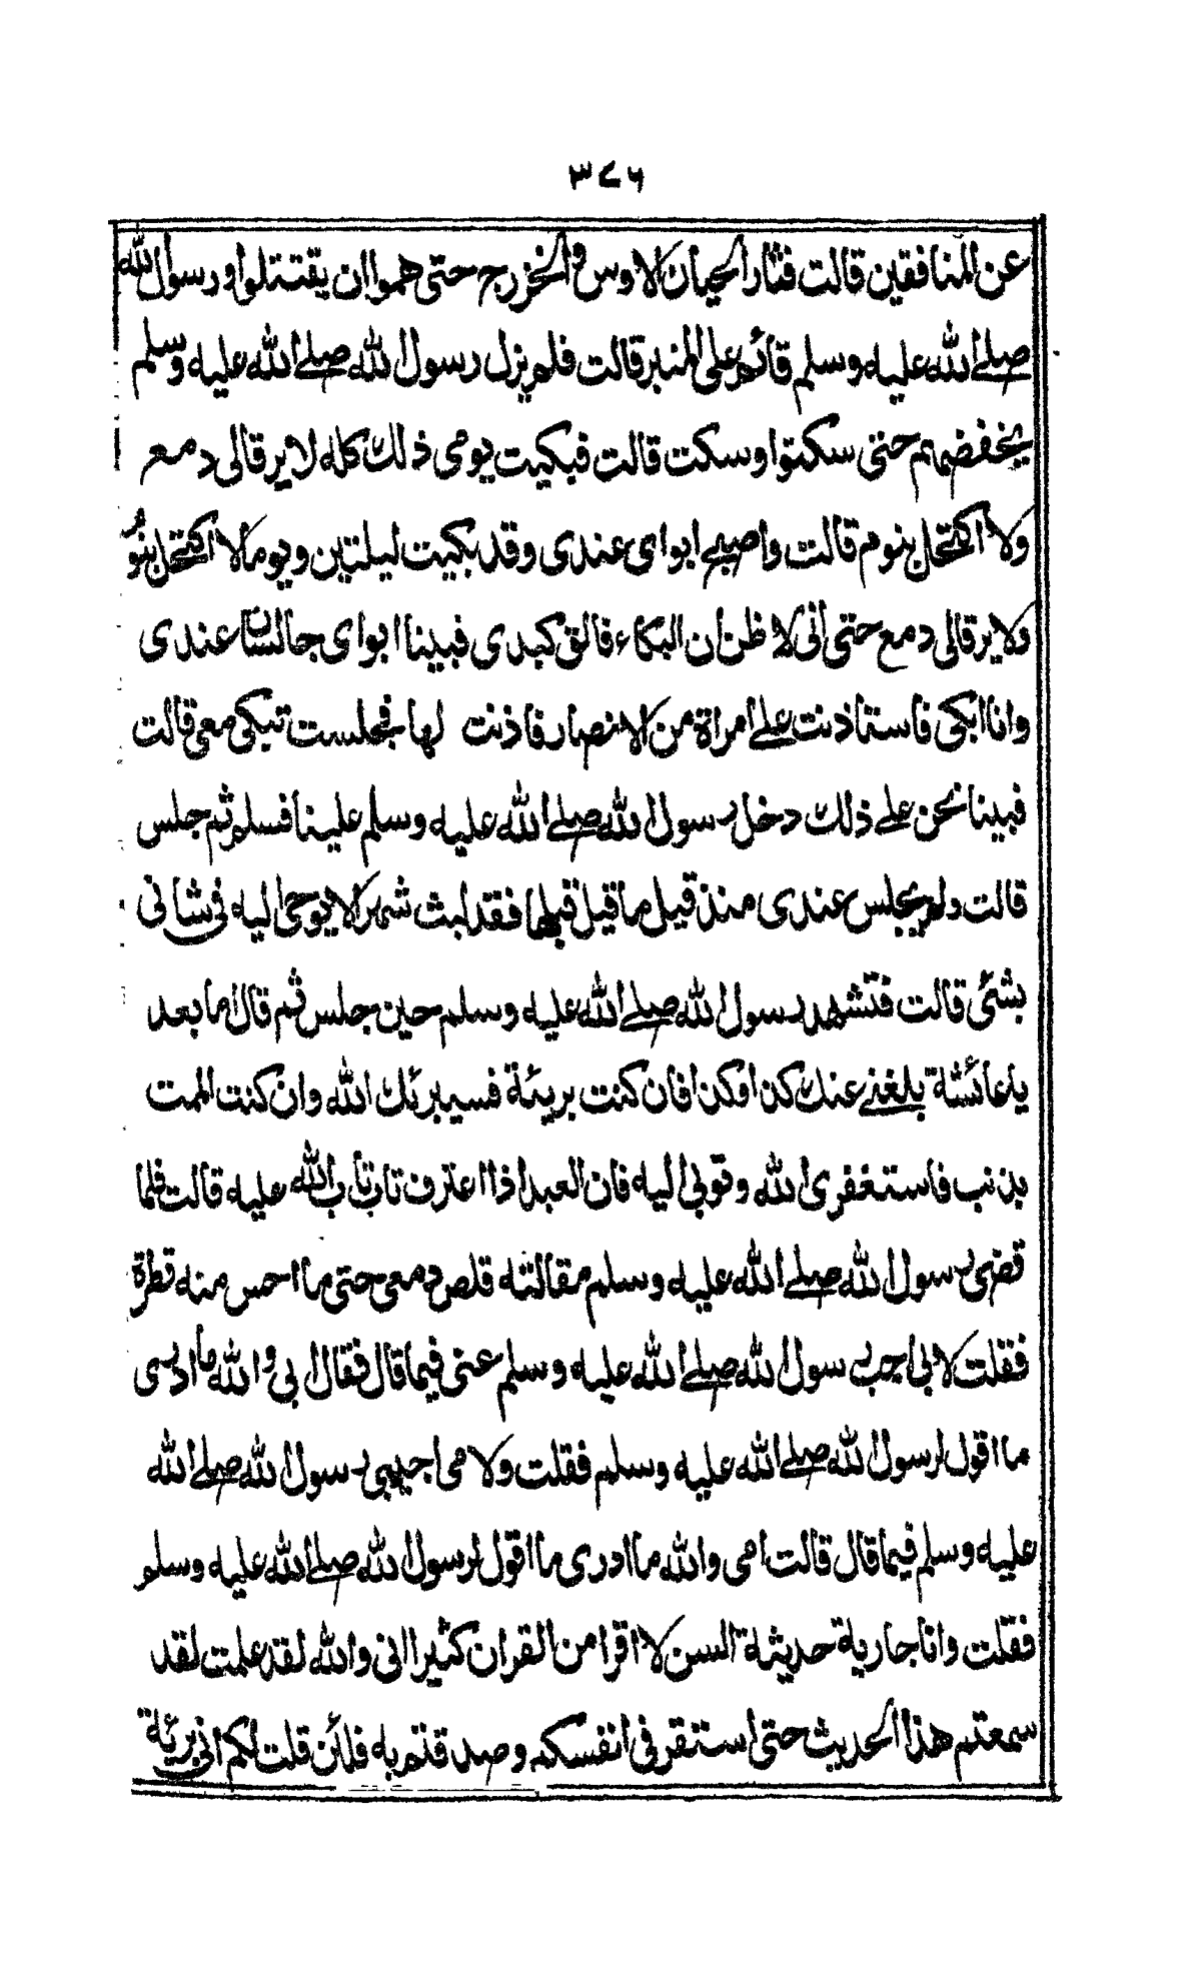 ٣٧٦
عن المنافقين قالت فثار الحيان الاوس والخزرج حتى هموا ان يقتتلوا ورسول الله
صلے الله عليه وسلم قائم على المنبر قالت فلم يزل رسول الله صلے الله عليه وسلم
يخفضهم حتى سكتوا وسكت قالت فبكيت يومى ذلك كله لا يرقالى دمع
ولا اكتحل بنوم قالت واصبح ابواى عندى وقد بكيت ليلتين ويوما لا اكتحل بنوم
ولا يرقالى دمع حتى انى لا ظن ان البكاء فالق كبدى فبينا ابواى جالسان عندى
وانا ابكى فاستاذنت علے امراة من الانصار فاذنت لها فجلست تبكى معى قالت
فبينا نحن علے ذلك دخل رسول الله صلے الله عليه وسلم علينا فسلم ثم جلس
قالت ولم يجلس عندى منذ قيل ما قيل قبلها فقد لبث شهرا لا يوحى اليه فى شانى
بشئى قالت فتشهد رسول الله صلے الله عليه وسلم حين جلس ثم قال اما بعد
يا عائشة بلغنے عنك كذا وكذا فان كنت بريئة فسيبرئك الله وان كنت الممت
بذنب فاستغفرى الله وتوبى اليه فان العبد اذا اعترف تاب تاب الله عليه قالت فلما
قضى رسول الله صلے الله عليه وسلم مقالته قلص دمعى حتى ما احس منه قطرة
فقلت لابى اجب رسول الله صلے الله عليه وسلم عنى فيما قال فقال ابى والله ما ادرى
ما اقول لرسول الله صلے الله عليه وسلم فقلت ولامى اجيبى رسول الله صلے الله
عليه وسلم فيما قال قالت امى والله ما ادرى ما اقول لرسول الله صلے الله عليه وسلم
فقلت وانا جارية حديثة السن لا اقرا من القران كثيرا انى والله لقد علمت لقد
سمعتم هذا الحديث حتى استقر فى انفسكم وصدقتم به فلئن قلت لكم انى بريئة